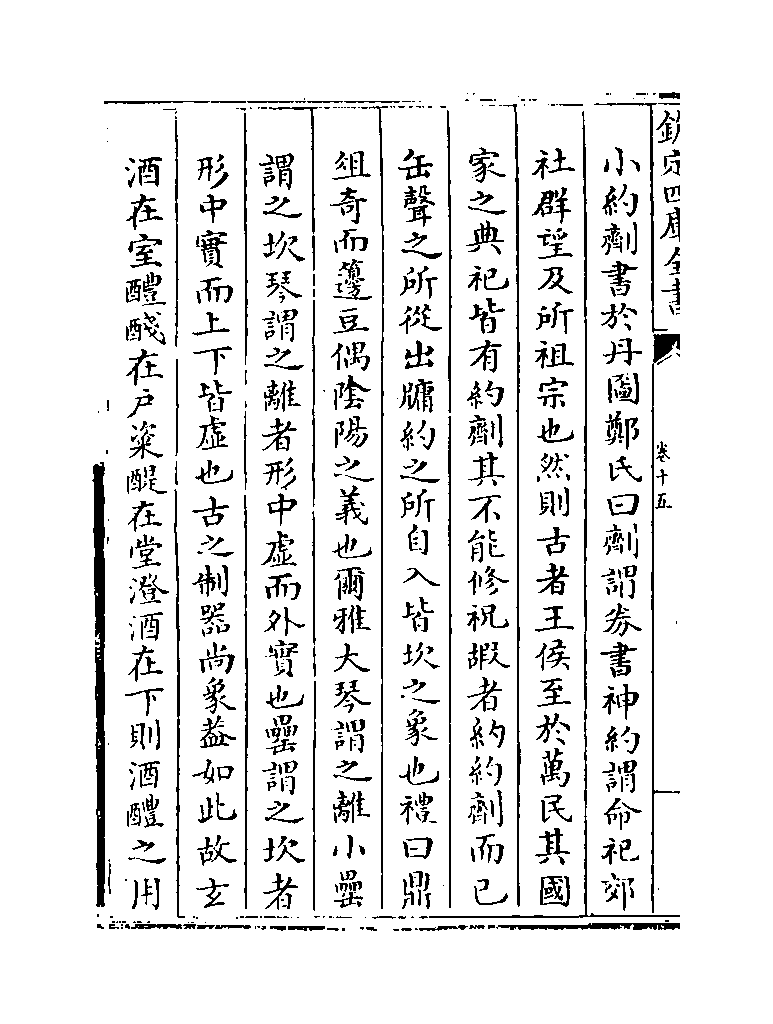 欽定四庫全書
卷十五
小約劑書於丹圖鄭氏曰劑謂券書神約謂命祀郊
社群望及所祖宗也然則古者王侯至於萬民其國
家之典祀皆有約劑其不能修祝嘏者約約劑而已
缶聲之所從出牖約之所自入皆坎之象也禮曰鼎
俎奇而籩豆偶陰陽之義也爾雅大琴謂之離小罍
謂之坎琴謂之離者形中虛而外實也罍謂之坎者
形中實而上下皆虛也古之制器尚象葢如此故玄
酒在室醴醆在戶粢醍在堂澄酒在下則酒醴之用